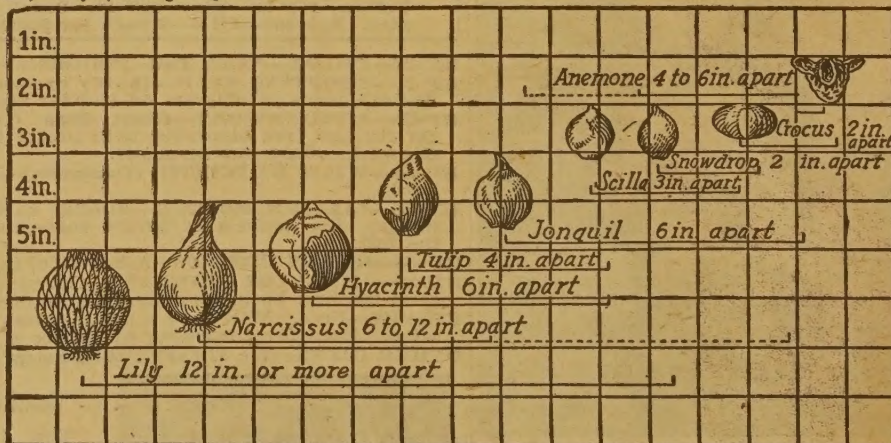 1in.
2in.
3in.
4in.
5in.
Anemone 4 to 6in. apart
Crocus 2in. apart
Snowdrop 2 in. apart
Scilla 3in. apart
Jonquil 6in. apart
Tulip 4in. apart
Hyacinth 6in. apart
Narcissus 6 to 12in. apart
Lily 12 in. or more apart